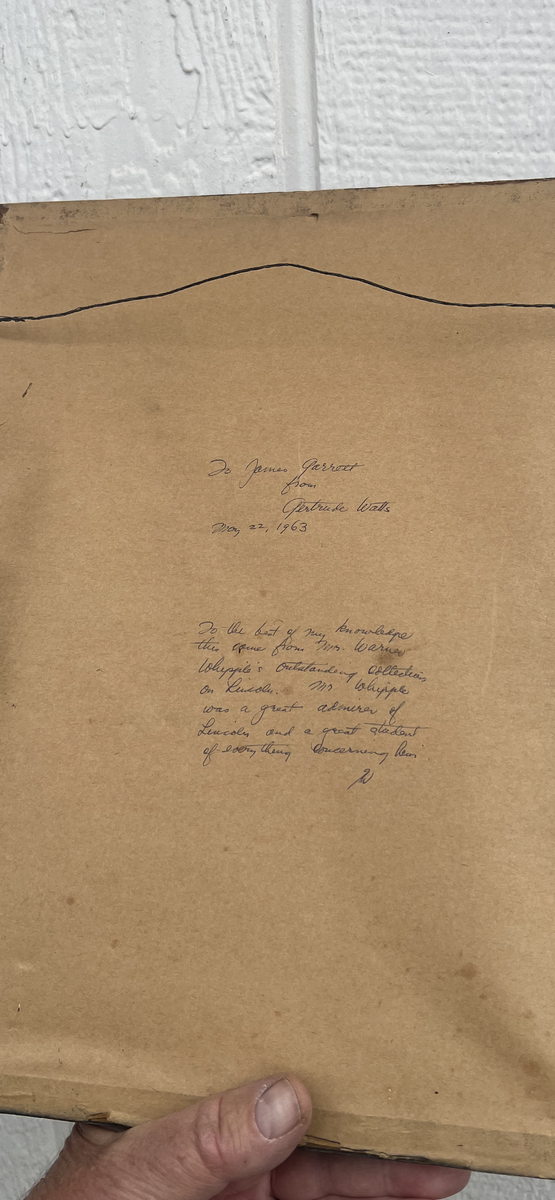 To James Garrott
from
Gertrude Watts
May 22, 1963
To the best of my knowledge
this came from Mr. Warner
Whipple's outstanding collection
on Lincoln. Mr Whipple
was a great admirer of
Lincoln and a great student
of everything concerning him
GW